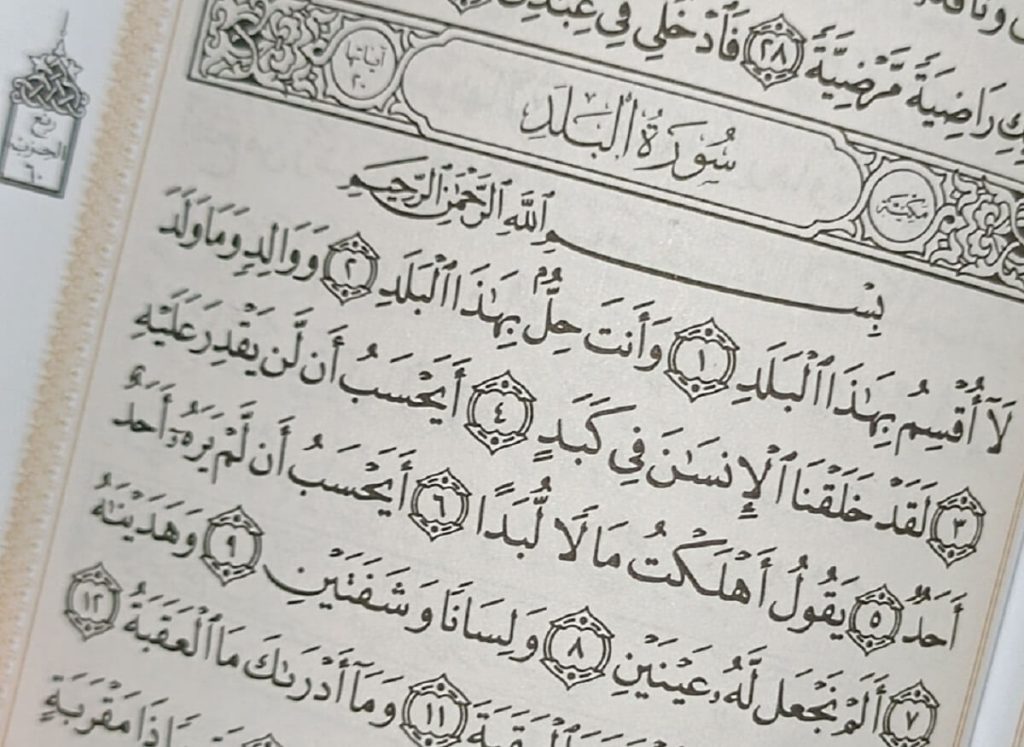 ـكِ رَاضِيَةً مَّرْضِيَّةً ٢٨ فَٱدْخُلِى فِى عِبَٰدِى
آيَاتُهَا ٢٠
سُورَةُ ٱلْبَلَدِ
مَكِّيَّة
بِسْمِ ٱللَّهِ ٱلرَّحْمَٰنِ ٱلرَّحِيمِ
لَآ أُقْسِمُ بِهَٰذَا ٱلْبَلَدِ ١ وَأَنتَ حِلٌّۢ بِهَٰذَا ٱلْبَلَدِ ٢ وَوَالِدٍ وَمَا وَلَدَ
٣ لَقَدْ خَلَقْنَا ٱلْإِنسَٰنَ فِى كَبَدٍ ٤ أَيَحْسَبُ أَن لَّن يَقْدِرَ عَلَيْهِ
أَحَدٌ ٥ يَقُولُ أَهْلَكْتُ مَالًا لُّبَدًا ٦ أَيَحْسَبُ أَن لَّمْ يَرَهُۥٓ أَحَدٌ
٧ أَلَمْ نَجْعَل لَّهُۥ عَيْنَيْنِ ٨ وَلِسَانًا وَشَفَتَيْنِ ٩ وَهَدَيْنَٰهُ
ٱلْعَقَبَةَ ١١ وَمَآ أَدْرَىٰكَ مَا ٱلْعَقَبَةُ ١٢
ذَا مَقْرَبَةٍ
ربع
الحزب
٦٠